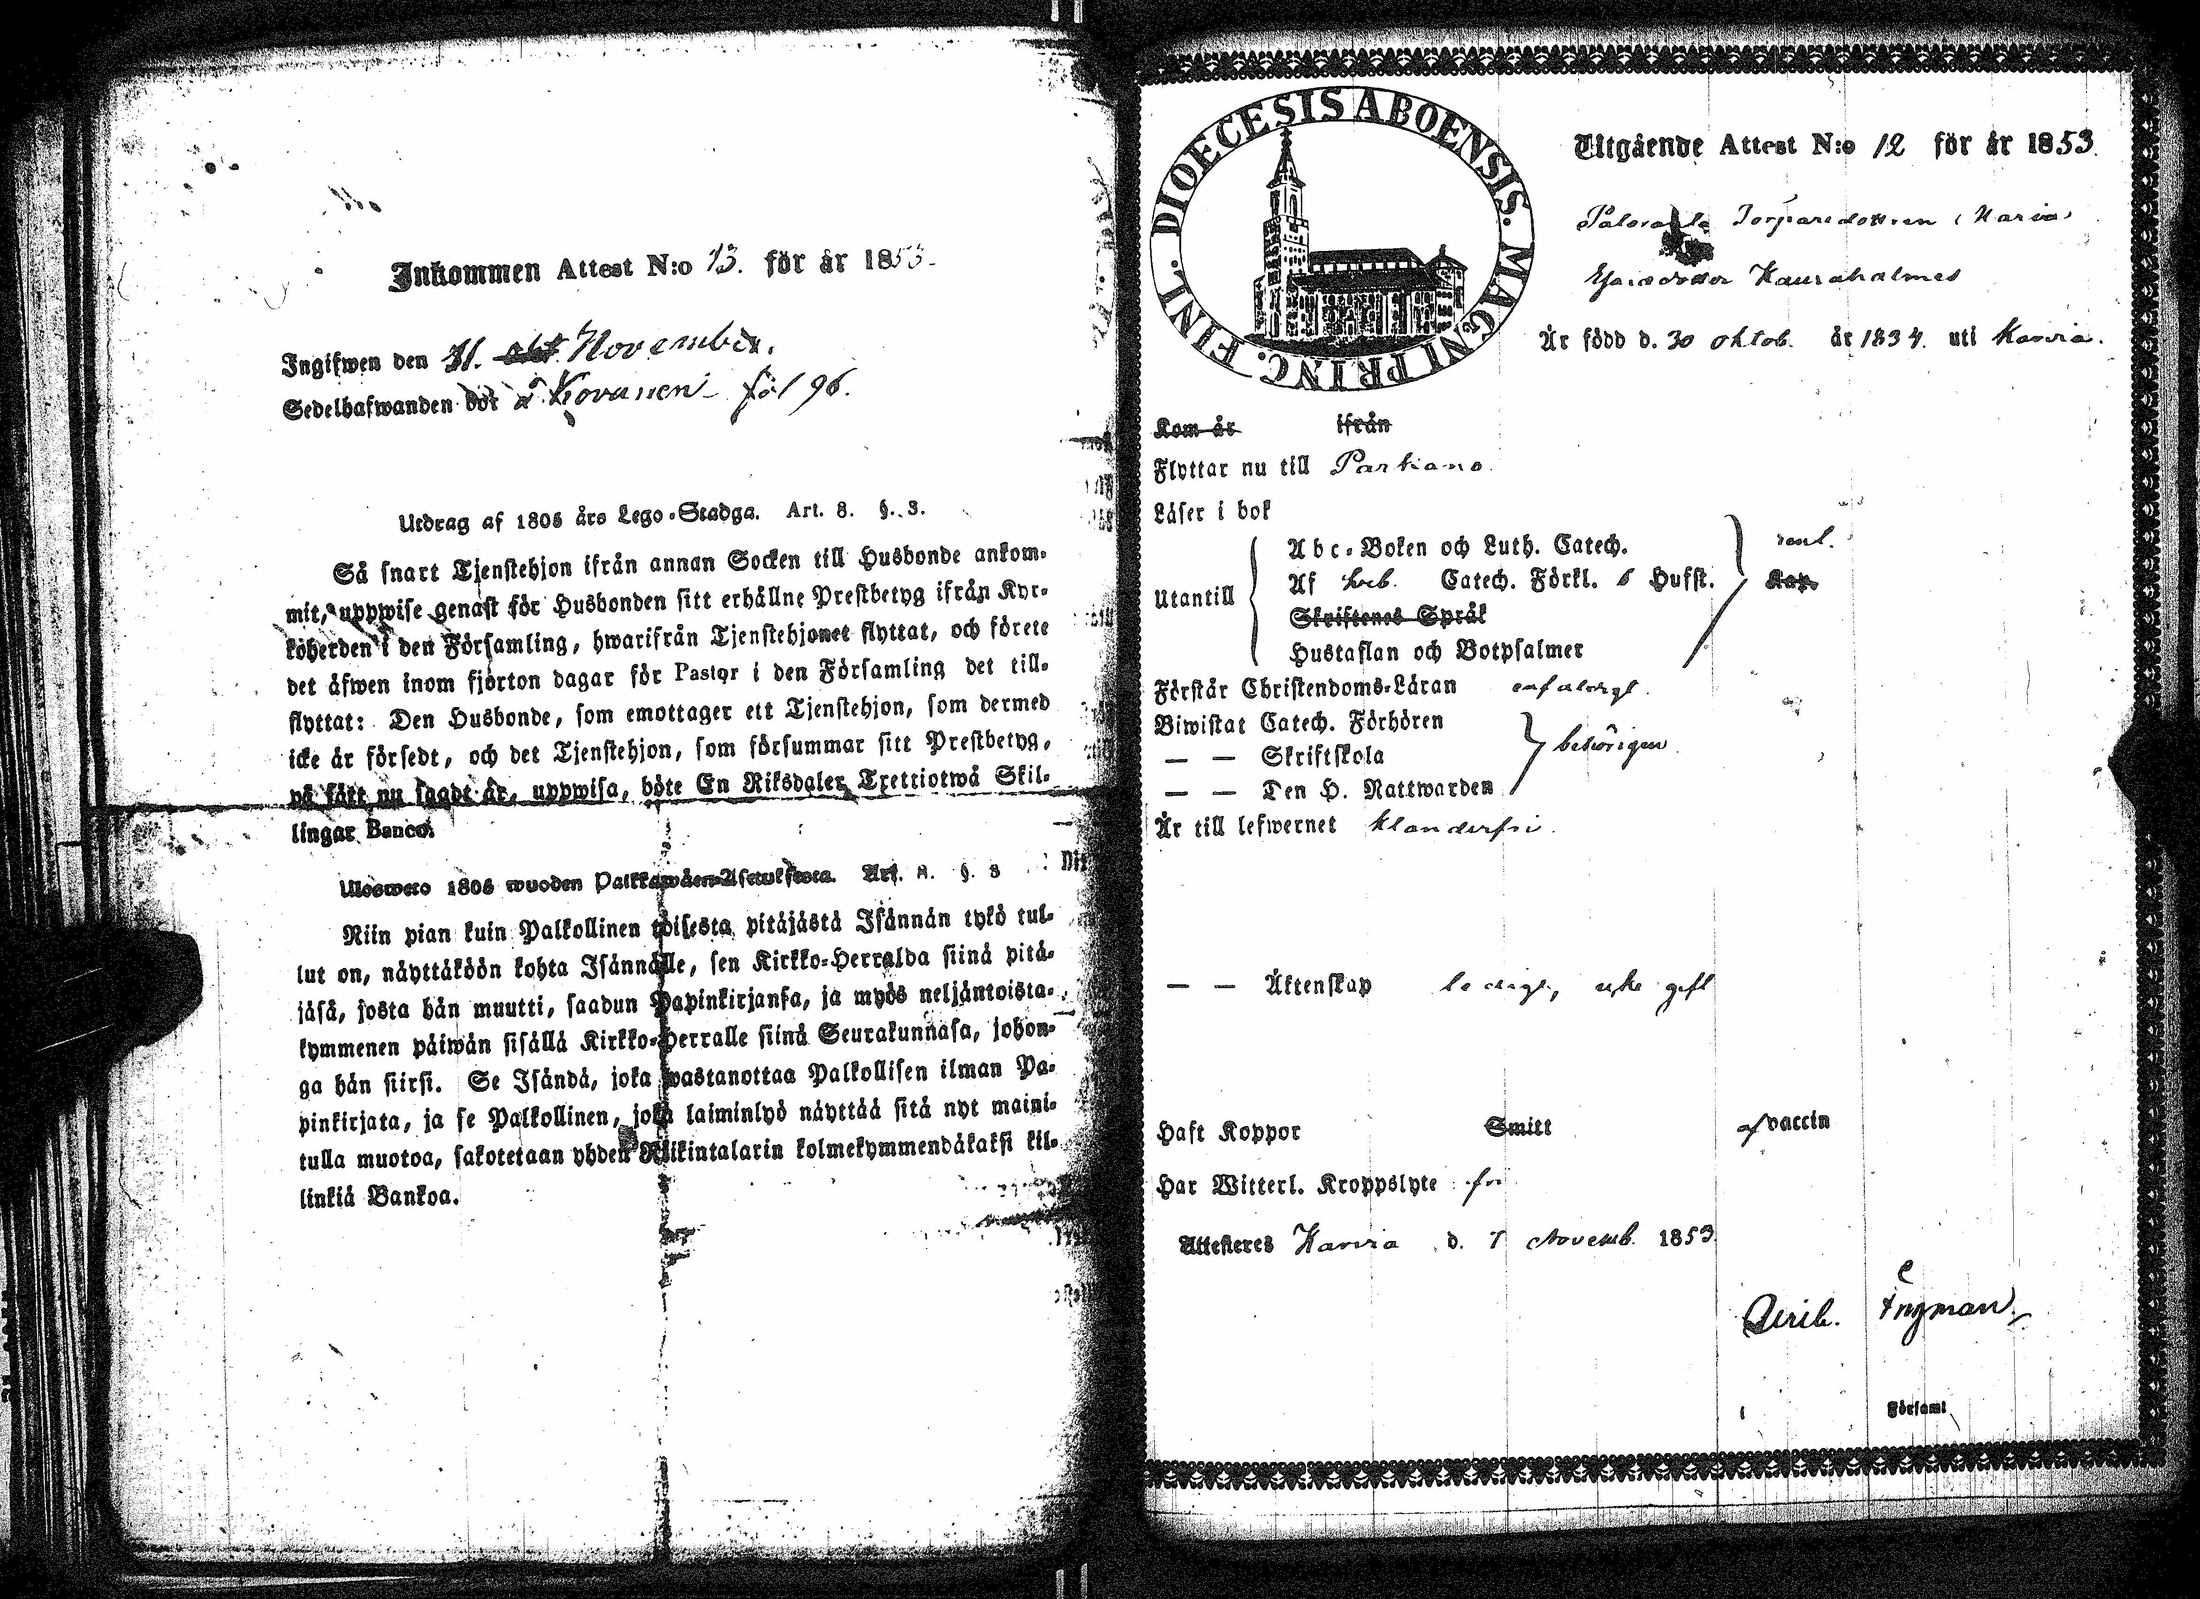 Inkommen Attest N:o 13. för år 1853.
Ingifwen den 11. November.
Sedelhafwanden bor å Kovanen föl 96.
Utdrag af 1805 års Lego-Stadga. Art. 8. §. 3.
Så snart Tjenstehjon ifrån annan Socken till Husbonde ankom-
mit, uppwise genast för Husbonden sitt erhållne Prestbetyg ifrån Kyr-
koherden i den Församling, hwarifrån Tjenstehjonet flyttat, och förete
det äfwen inom fjorton dagar för Pastor i den Församling det till-
flyttat: Den Husbonde, som emottager ett Tjenstehjon, som dermed
icke är försedt, och det Tjenstehjon, som försummar sitt Prestbetyg,
på sätt nu sagdt är, uppwisa, böte En Riksdaler Trettiotwå Skil-
lingar Banco.
Uloswero 1805 wuoden Palkkawäen-Asetuksesta. Art. 8. §. 3
Niin pian kuin Palkollinen toisesta pitäjästä Isännän tykö tul-
lut on, näyttäköön kohta Isännälle, sen Kirkko-Herralda siinä pitä-
jäsä, josta hän muutti, saadun Papinkirjansa, ja myös neljäntoista-
kymmenen päiwän sisällä Kirkko-Herralle siinä Seurakunnasa, johon-
ga hän siirsi. Se Isändä, joka wastanottaa Palkollisen ilman Pa-
pinkirjata, ja se Palkollinen, joka laiminlyö näyttää sitä nyt maini-
tulla muotoa, sakotetaan yhden Riikintalarin kolmekymmendäkaksi kil-
linkiä Bankoa.
DIOECESIS ABOENSIS. MAGNI PRINC. FINL.
Utgående Attest N:o 12 för år 1853.
Torparedottren Maria
Kaurahalmes
Är född d. 30 oktob. år 1834. uti Karvia.
Kom år ifrån
Flyttar nu till Parkano.
Läser i bok
Abc-Boken och Luth. Catech. rent.
Utantill Af Catech. Förkl. 6 Hufst. Kap.
Skriftenes Språk
Hustaflan och Botpsalmer
Förstår Christendoms-Läran enfaldigt.
Biwistat Catech. Förhören
— — Skriftskola behörigen.
— — Den H. Nattwarden
Är till lefwernet klanderfri.
— — Äktenskap ledig, icke gift
Haft Koppor Smitt af vaccin
Har Witterl. Kroppslyte fri
Attesteres Karvia d. 7 Novemb. 1853
Ingman
Församl